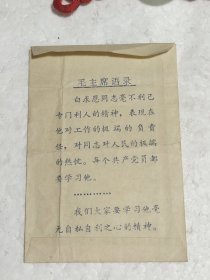 毛主席语录
白求恩同志毫不利己
专门利人的精神，表现在
他对工作的极端的负责
任，对同志对人民的极端
的热忱。每个共产党员都
要学习他。
…………
我们大家要学习他毫
无自私自利之心的精神。